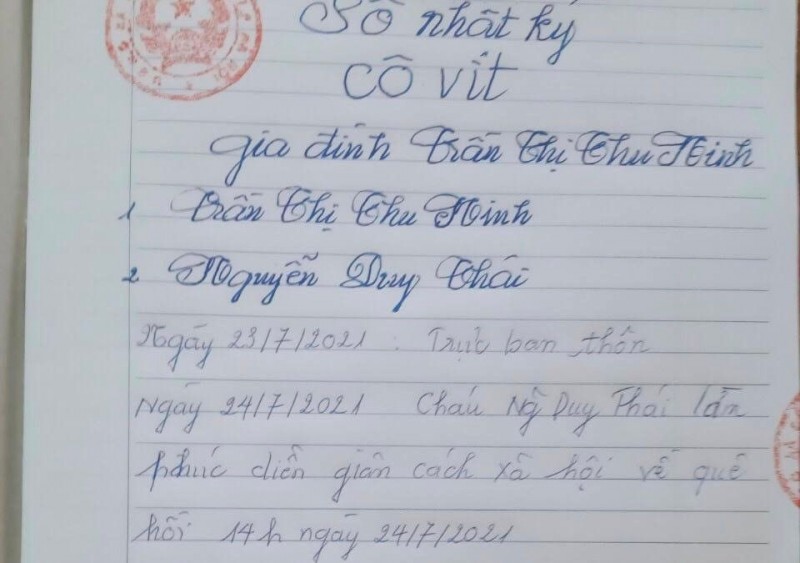 Sổ nhật ký
CÔ VIT
gia đình Trần Thị Thu Ninh
1 Trần Thị Thu Ninh
2 Nguyễn Duy Thái
Ngày 23/7/2021 : Trực ban thôn
Ngày 24/7/2021 Cháu Ng Duy Thái
phúc diễn giãn cách xã hội về quê
hồi 14h ngày 24/7/2021